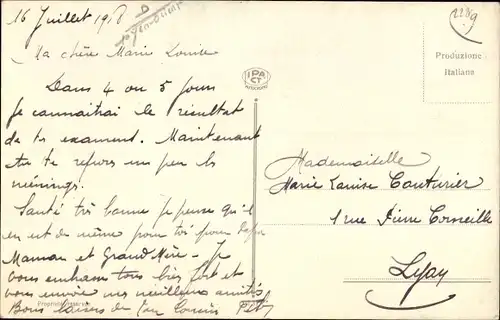 16 Juillet 1918
Ma chère Marie Louise
Dans 4 ou 5 jours
je connaitrai le résultat
de tes examens. Maintenant
tu te reposes un peu les
méninges.
Santé très bonne je pense qu'il
en est de même pour toi pour
Maman et Grand Mère - Je
vous embrasse tous bien fort et
vous envoie mes meilleurs amitiés
Bons baisers de ton Cousin
Proprietà riservata
IPA
CT
2289
Produzione
Italiana
Mademoiselle
Marie Louise Couturier
1 rue Pierre Corneille
Lyon